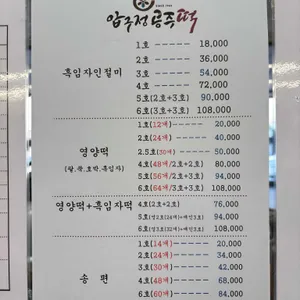 압구정공주떡
1호 ----- 18,000
2호 ----- 36,000
흑임자인절미 3호 ----- 54,000
4호 ----- 72,000
5호(2호+3호) 90,000
6호(3호+3호) 108,000
1호(12개) ---- 20,000
2호(24개) ---- 40,000
영양떡 2.5호(30개) ---- 50,000
(팥,쑥,호박,흑임자) 4호(48개/2호+2호) 80,000
5호(56개/2호+3호) 94,000
6호(64개/3호+3호) 108,000
영양떡+흑임자떡 4호(2호+2호) 76,000
5호 94,000
6호 108,000
1호(14개) ---- 20,000
2호(24개) ---- 34,000
송 편 3호(30개) ---- 42,000
4호(48개) ---- 68,000
6호(60개) ---- 84,000